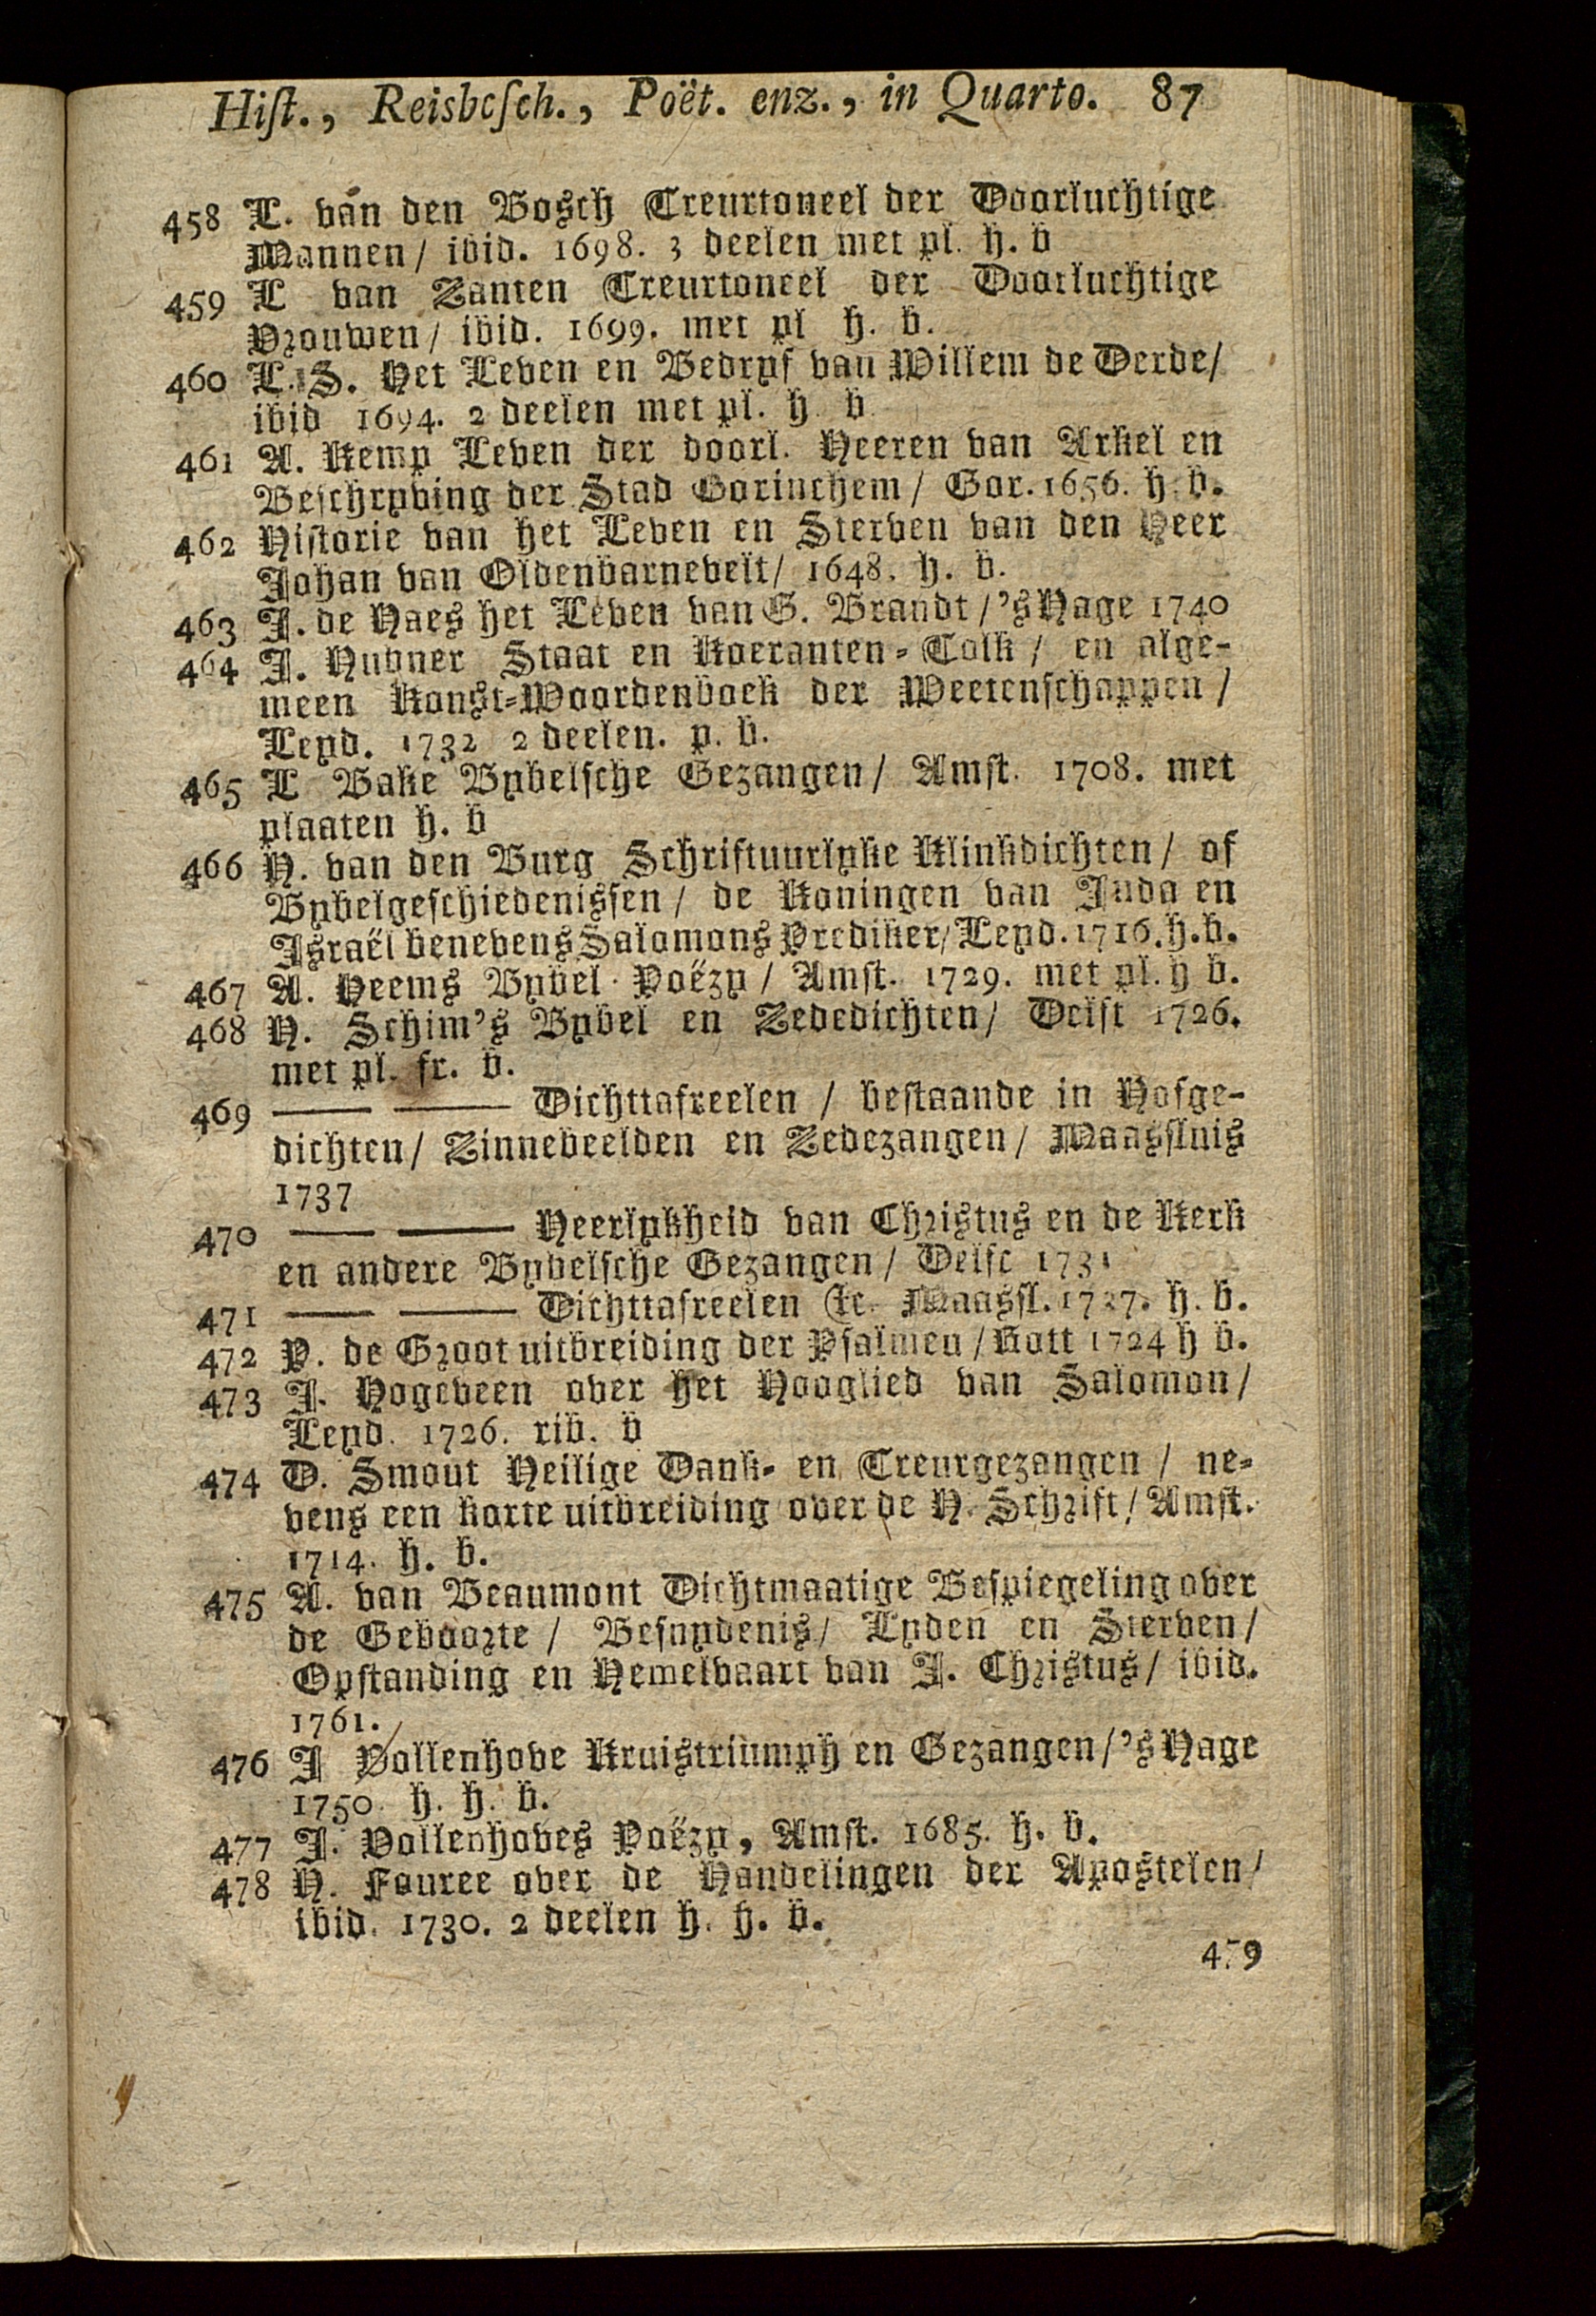 Hist., Reisbesch., Poët. enz., in Quarto. 87
458 L. van den Bosch Treurtoneel der Doorluchtige
Mannen / ibid. 1698. 3 deelen met pl. h. b
459 L van Zanten Treurtoneel der Doorluchtige
Vrouwen / ibid. 1699. met pl h. b.
460 L. S. Het Leven en Bedryf van Willem de Derde /
ibid 1694. 2 deelen met pl. h b
461 A. Kemp Leven der doorl. Heeren van Arkel en
Beschryving der Stad Gorinchem / Gor. 1656. h. b.
462 Historie van het Leven en Sterven van den Heer
Johan van Oldenbarnevelt / 1648. h. b.
463 J. de Haes het Leven van G. Brandt / 's Hage 1740
464 J. Hubner Staat en Koeranten-Tolk / en alge-
meen Konst-Woordenboek der Weetenschappen /
Leyd. 1732 2 deelen. p. b.
465 L Bake Bybelsche Gezangen / Amst. 1708. met
plaaten h. b
466 H. van den Burg Schriftuurlyke Klinkdichten / of
Bybelgeschiedenissen / de Koningen van Juda en
Israël benevens Salomons Prediker / Leyd. 1716. h. b.
467 A. Heems Bybel Poëzy / Amst. 1729. met pl. h b.
468 H. Schim's Bybel en Zededichten / Delft 1726.
met pl. fr. b.
469 —— —— Dichttafreelen / bestaande in Hofge-
dichten / Zinnebeelden en Zedezangen / Maassluis
1737
470 —— —— Heerlykheid van Christus en de Kerk
en andere Bybelsche Gezangen / Delft 1731
471 —— —— Dichttafreelen &c. Maassl. 1727. h. b.
472 P. de Groot uitbreiding der Psalmen / Rott 1724 h b.
473 J. Hogeveen over het Hooglied van Salomon /
Leyd. 1726. rib. b
474 D. Smout Heilige Dank- en Treurgezangen / ne-
vens een korte uitbreiding over de H. Schrift / Amst.
1714. h. b.
475 A. van Beaumont Dichtmaatige Bespiegeling over
de Geboorte / Besnydenis / Lyden en Sterven /
Opstanding en Hemelvaart van J. Christus / ibid.
1761.
476 J Vollenhove Kruistriumph en Gezangen / 's Hage
1750. h. h. b.
477 J. Vollenhoves Poëzy, Amst. 1685. h. b.
478 H. Fouree over de Handelingen der Apostelen /
ibid. 1730. 2 deelen h. h. b.
479